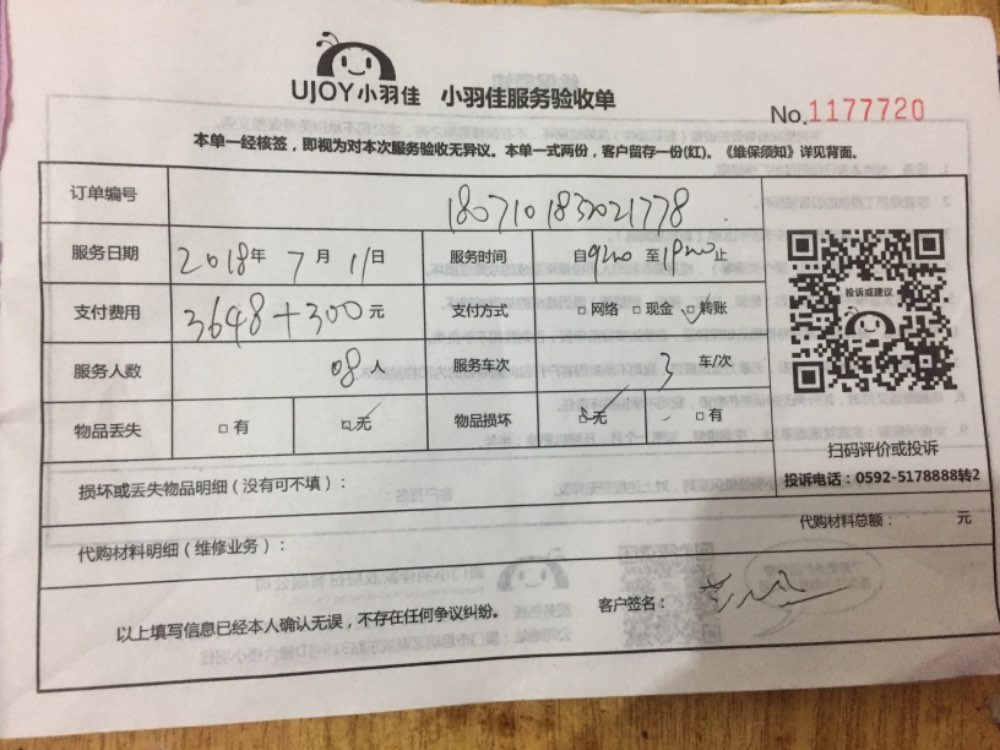 UJOY小羽佳 小羽佳服务验收单
No.1177720
本单一经核签，即视为对本次服务验收无异议。本单一式两份，客户留存一份(红)。《维保须知》详见背面。
订单编号 180710183021778
服务日期 2018年 7月 11日 服务时间 自9:00 至19:00止
支付费用 3648+300元 支付方式 □网络 □现金 □转账
投诉或建议
服务人数 08人 服务车次 3 车/次
物品丢失 □有 □无 物品损坏 □无 □有
扫码评价或投诉
损坏或丢失物品明细（没有可不填）：
投诉电话：0592-5178888转2
代购材料总额： 元
代购材料明细（维修业务）：
客户签名：
以上填写信息已经本人确认无误，不存在任何争议纠纷。